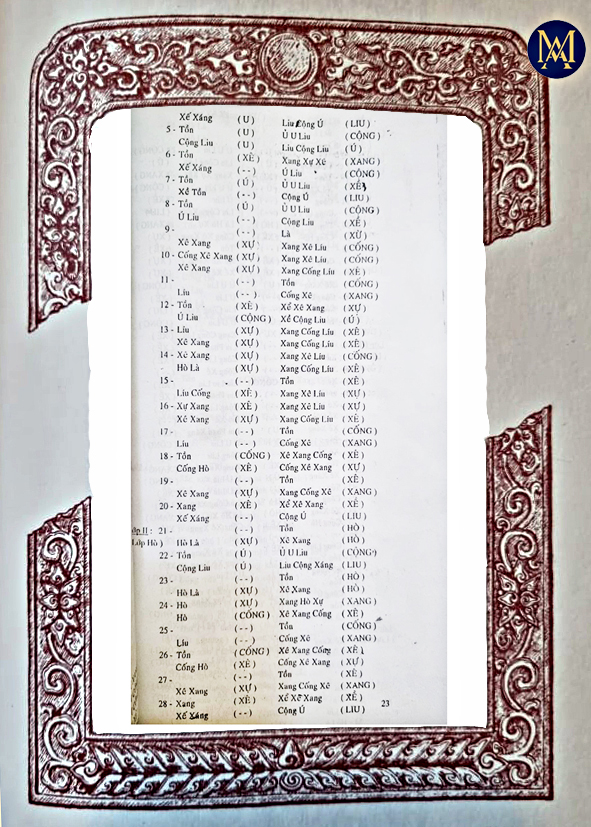 MA
Xế Xáng (U) Liu Cộng Ú (LIU)
5 - Tồn (U) Ủ U Liu (CỘNG)
Cộng Liu (U) Liu Cộng Liu (Ú)
6 - Tồn (XÊ) Xang Xự Xê (XANG)
Xế Xáng (--) Ú Liu (CỘNG)
7 - Tồn (Ú) Ủ U Liu (XỀ)
Xề Tồn (--) Cộng Ú (LIU)
8 - Tồn (Ú) Ủ U Liu (CỘNG)
Ú Liu (--) Cộng Liu (XỀ)
9 - (--) Là (XỪ)
Xê Xang (XỰ) Xang Xê Liu (CỐNG)
10 - Cống Xê Xang (XỰ) Xang Xê Liu (CỐNG)
Xê Xang (XỰ) Xang Cống Líu (XÊ)
11 - (--) Tồn (CỐNG)
Líu (--) Cống Xê (XANG)
12 - Tồn (XÊ) Xể Xê Xang (XỰ)
Ú Liu (CỘNG) Xề Cộng Liu (Ú)
13 - Líu (XỰ) Xang Cống Líu (XÊ)
Xê Xang (XỰ) Xang Cống Líu (XÊ)
14 - Xê Xang (XỰ) Xang Xê Líu (CỐNG)
Hò Là (XỰ) Xang Cống Líu (XÊ)
15 - (--) Tồn (XÊ)
Líu Cống (XÊ) Xang Xê Líu (XỰ)
16 - Xự Xang (XÊ) Xang Xê Líu (XỰ)
Xê Xang (XỰ) Xang Cống Líu (XÊ)
17 - (--) Tồn (CỐNG)
Líu (--) Cống Xê (XANG)
18 - Tồn (CỐNG) Xê Xang Cống (XÊ)
Cống Hò (XÊ) Cống Xê Xang (XỰ)
19 - (--) Tồn (XÊ)
Xê Xang (XỰ) Xang Cống Xê (XANG)
20 - Xang (XÊ) Xể Xê Xang (XÊ)
Xế Xáng (--) Cộng Ú (LIU)
ớp II : 21 - (--) Tồn (HÒ)
Lớp Hò) Hò Là (XỰ) Xê Xang (HÒ)
22 - Tồn (Ú) Ủ U Liu (CỘNG)
Cộng Liu (Ú) Liu Cộng Xáng (LIU)
23 - (--) Tồn (HÒ)
Hò Là (XỰ) Xê Xang (HÒ)
24 - Hò (XỰ) Xang Hò Xự (XANG)
Hò (CỐNG) Xê Xang Cống (XÊ)
25 - (--) Tồn (CỐNG)
Líu (--) Cống Xê (XANG)
26 - Tồn (CỐNG) Xê Xang Cống (XÊ)
Cống Hò (XÊ) Cống Xê Xang (XỰ)
27 - (--) Tồn (XÊ)
Xê Xang (XỰ) Xang Cống Xê (XANG)
28 - Xang (XÊ) Xể Xê Xang (XÊ) 23
Xế Xáng (--) Cộng Ú (LIU)